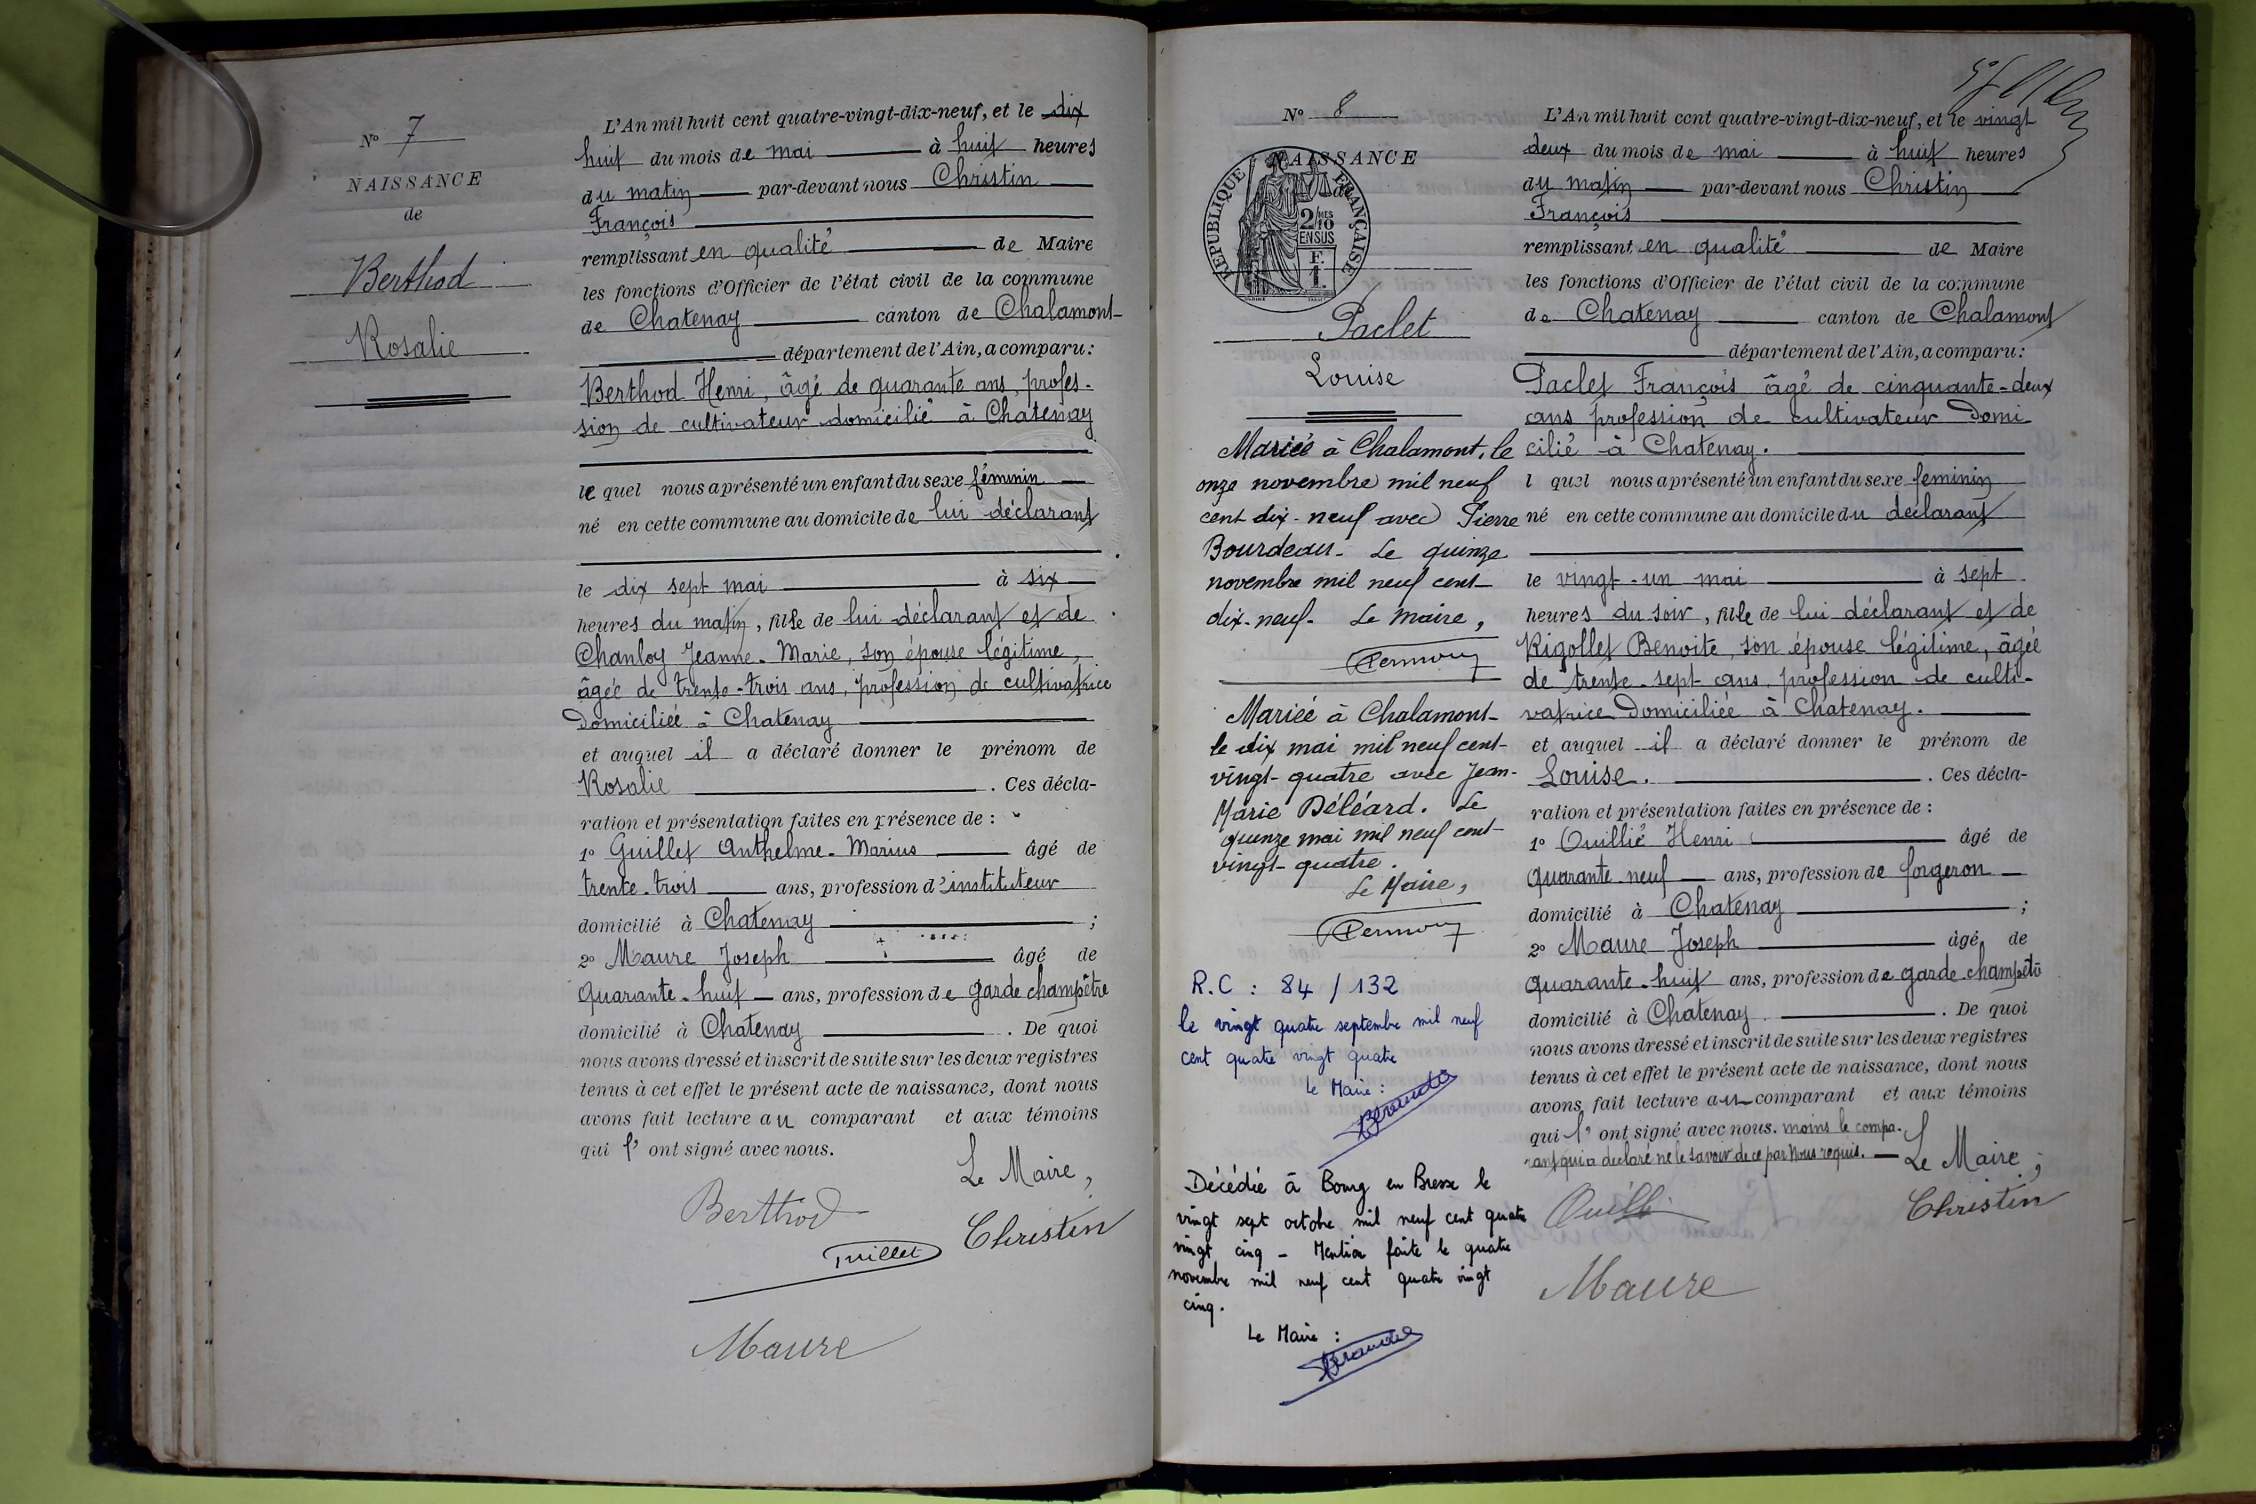 N° 7
NAISSANCE
de
Berthod
Rosalie
L'An mil huit cent quatre-vingt-dix-neuf, et le dix
huit du mois de mai à huit heures
du matin par-devant nous Christin
François
remplissant en qualité de Maire
les fonctions d'Officier de l'état civil de la commune
de Chatenay canton de Chalamont
département de l'Ain, a comparu:
Berthod Henri, âgé de quarante ans, profes-
sion de cultivateur domicilié à Châtenay
le quel nous a présenté un enfant du sexe féminin
né en cette commune au domicile de lui déclarant
le dix sept mai à six
heures du matin, fille de lui déclarant et de
Chanloy Jeanne-Marie, son épouse légitime,
âgée de trente-trois ans, profession de cultivatrice
Domiciliée à Chatenay
et auquel il a déclaré donner le prénom de
Rosalie. Ces décla-
ration et présentation faites en présence de :
1° Guillet Anthelme-Marius âgé de
trente-trois ans, profession d'instituteur
domicilié à Chatenay ;
2° Maure Joseph âgé de
quarante-huit ans, profession de garde champêtre
domicilié à Chatenay. De quoi
nous avons dressé et inscrit de suite sur les deux registres
tenus à cet effet le présent acte de naissance, dont nous
avons fait lecture au comparant et aux témoins
qui l'ont signé avec nous.
Le Maire,
Berthod
Guillet
Christin
Maure
N° 8
NAISSANCE
de
REPUBLIQUE FRANÇAISE
2/10 MES
EN SUS
F.
1.
Paclet
Louise
Mariée à Chalamont, le
onze novembre mil neuf
cent dix-neuf avec Pierre
Bourdeau. Le quinze
novembre mil neuf cent
dix-neuf. Le Maire,
Mariée à Chalamont
le dix mai mil neuf cent
vingt-quatre avec Jean-
Marie Déléard. Le
quinze mai mil neuf cent
vingt-quatre.
Le Maire,
R.C : 84 / 132
le vingt quatre septembre mil neuf
cent quatre vingt quatre
Le Maire :
Décédée à Bourg en Bresse le
vingt sept octobre mil neuf cent quatre
vingt cinq - Mention faite le quatre
novembre mil neuf cent quatre vingt
cinq.
Le Maire :
L'An mil huit cent quatre-vingt-dix-neuf, et le vingt
deux du mois de mai à huit heures
du matin par-devant nous Christin
François
remplissant en qualité de Maire
les fonctions d'Officier de l'état civil de la commune
de Chatenay canton de Chalamont
département de l'Ain, a comparu:
Paclet François âgé de cinquante-deux
ans profession de cultivateur Domi
cilié à Chatenay.
l quel nous a présenté un enfant du sexe feminin
né en cette commune au domicile du déclarant
le vingt-un mai à sept
heures du soir, fille de lui déclarant et de
Rigollet Benoite, son épouse légitime, âgée
de trente-sept ans, profession de culti-
vatrice Domiciliée à Chatenay.
et auquel il a déclaré donner le prénom de
Louise. Ces décla-
ration et présentation faites en présence de :
1° Ouillié Henri âgé de
quarante-neuf ans, profession de forgeron
domicilié à Chatenay ;
2° Maure Joseph âgé de
quarante-huit ans, profession de garde champêtre
domicilié à Chatenay. De quoi
nous avons dressé et inscrit de suite sur les deux registres
tenus à cet effet le présent acte de naissance, dont nous
avons fait lecture au comparant et aux témoins
qui l'ont signé avec nous. moins le compa-
rant qui a déclaré ne le savoir de ce par Nous requis.
Le Maire,
Christin
Maure